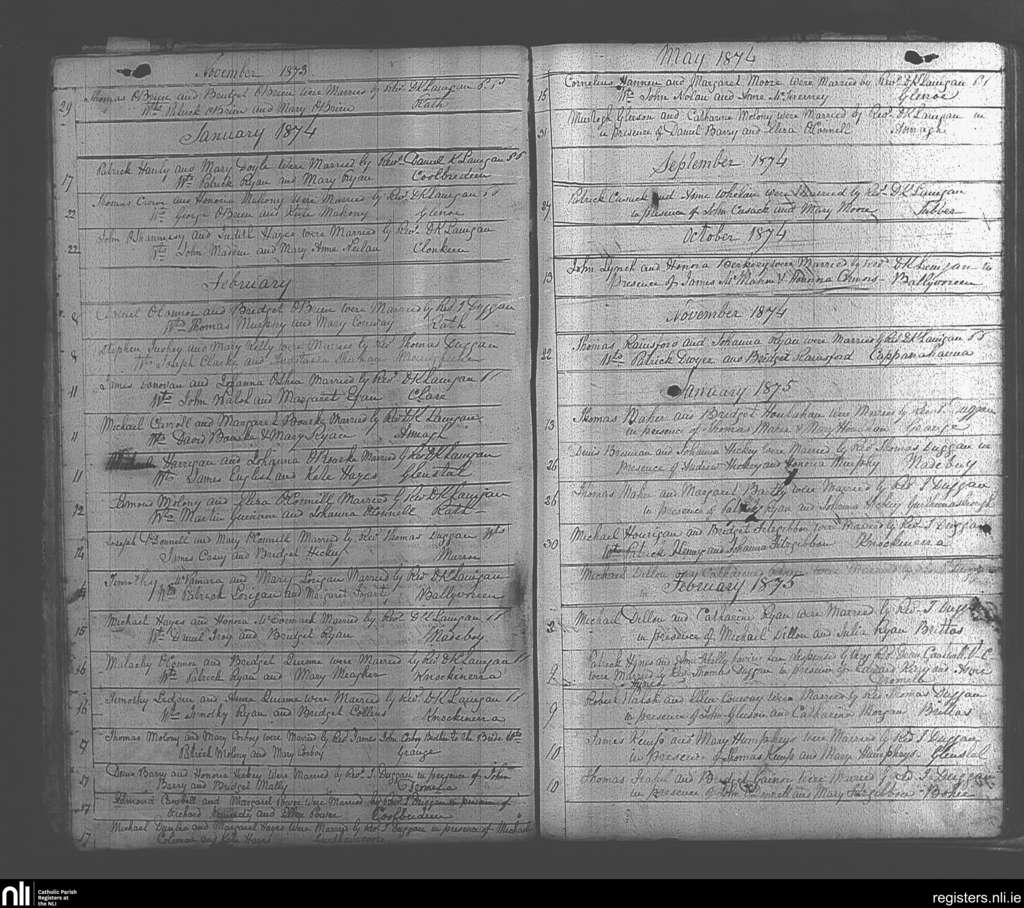 November 1873
29 Thomas O'Brien and Bridget O'Brien were Married by Rev. D K Lanigan P.P
Wts Patrick O'Brien and Mary O'Brien Rath
January 1874
17 Patrick Hanly and Mary Doyle were Married by Rev. Daniel K Lanigan PP
Wts Patrick Ryan and Mary Ryan Coolbreedeen
22 Thomas and Honoria Mahony were Married by Rev. D K Lanigan PP
Wts George O'Brien and Mahony Glenoe
22 John O'Shaunnesy and Judith Hayes were Married by Rev. D K Lanigan
Wts John Madden and Mary Anne Neilan Clonkeen
February
8 O'Connor and Bridget O'Brien were Married by Rev. T Duggan
Wts Thomas Murphy and Mary Conway Rath
8 Stephen and Mary Kelly were Married by Rev Thomas Duggan
Wts Joseph Clarke and
11 James Donovan and Johanna O'Shea Married by Rev. D K Lanigan PP
Wts John Walsh and Margaret Egan Clare
11 Michael Carroll and Margaret Bourke Married by Rev. D K Lanigan
Wts David Bourke & Mary Ryan Annagh
11 Harrigan and Johanna Married by Rev. D K Lanigan
Wts James English and Kate Hayes Glenstal
12 Edmond Molony and Eliza O'Connell Married by Rev D K Lanigan
Wts Martin and Johanna O'Connell Rath
14 Joseph O'Donnell and Mary O'Connell Married by Rev Thomas Duggan Wts
James Casey and Bridget Hickey Murroe
Timothy McNamara and Mary Lorigan Married by Rev D K Lanigan
Wts Patrick Lorigan and Margaret Ballyvoreen
15 Michael Hayes and Honora McCormack Married by Rev. D K Lanigan PP
Wts Daniel Troy and Bridget Ryan Madeboy
16 Malachy O'Connor and Bridget Quinane were Married by Rev. D K Lanigan PP
Wts Patrick Ryan and Mary Meagher Knockinerra
16 Timothy and Anne Quinane were Married by Rev. D K Lanigan PP
Wts Timothy Ryan and Bridget Collins Knockinerra
17 Thomas Molony and Mary Conboy were Married by Rev. James John Brother to the Bride Wts
Patrick Molony and Mary Conboy Grange
17 Denis Barry and Honora Hickey were Married by Rev. T. Duggan in presence of John
Barry and Bridget Mally
17 Edmond Campbell and Margaret were Married by Rev. T Duggan in presence of
Richard Kennedy and Ellen Coolbreedeen
17 Michael and Margaret Hayes were Married by Rev T Duggan in presence of Michael
Coleman and Kate Hayes
May 1874
15 Cornelius Hannen and Margaret Moore were Married by Rev. D K Lanigan PP
Wts John Nolan and Anne McInerney Glenoe
31 Murtogh Gleeson and Catharine Molony were Married by Rev. D K Lanigan in
in presence of Daniel Barry and Eliza O'Connell Annagh
September 1874
27 Patrick Cusack and Anne Whelan were Married by Rev. D K Lanigan
in presence of John Cusack and Mary Moore Tubber
October 1874
13 John Lynch and Honora Berkery were Married by Rev. D K Lanigan in
presence of James McMahon & Hannna Connors Ballyvoreen
November 1874
22 Thomas Rainsford and Johanna Ryan were Married by Rev. D K Lanigan PP
Wts Patrick Dwyer and Bridget Rainsford Cappanahanna
January 1875
13 Thomas Maher and Bridget Houlahan were Married by Rev. T Duggan
in presence of Thomas Maher & Mary Grange
26 Denis Brennan and Johanna Hickey were Married by Rev Thomas Duggan in
presence of Andrew Hickey and Honora Murphy Madeboy
26 Thomas Maher and Margaret were Married by Rev T Duggan
in presence of Patrick Ryan and Johanna Hickey
30 Michael Hourigan and Bridget Fitzgibbon were Married by Rev. T Duggan
Wts Patrick and Johanna Fitzgibbon Knockinerra
Michael Dillon
February 1875
2 Michael Dillon and Catharine Ryan were Married by Rev. T Duggan
in presence of Michael Dillon and Julia Ryan Brittas
9 Patrick Hynes and Anne having been dispensed by Very Rev. V.C.
were Married by Rev. Thomas Duggan in presence of Edward and Anne
Hynes
9 Robert Walsh and Ellen Conway were Married by Rev Thomas Duggan
in presence of John Gleeson and Catharine Morgan Brittas
10 James Kemp and Mary Humphreys were Married by Rev. T Duggan
in presence of Thomas Kemp and Mary Humphreys Glenstal
10 Thomas and Bridget Gainor were Married by Rev T Duggan
in presence of and Mary Fitzgibbon
nli Catholic Parish
Registers at
the NLI
registers.nli.ie